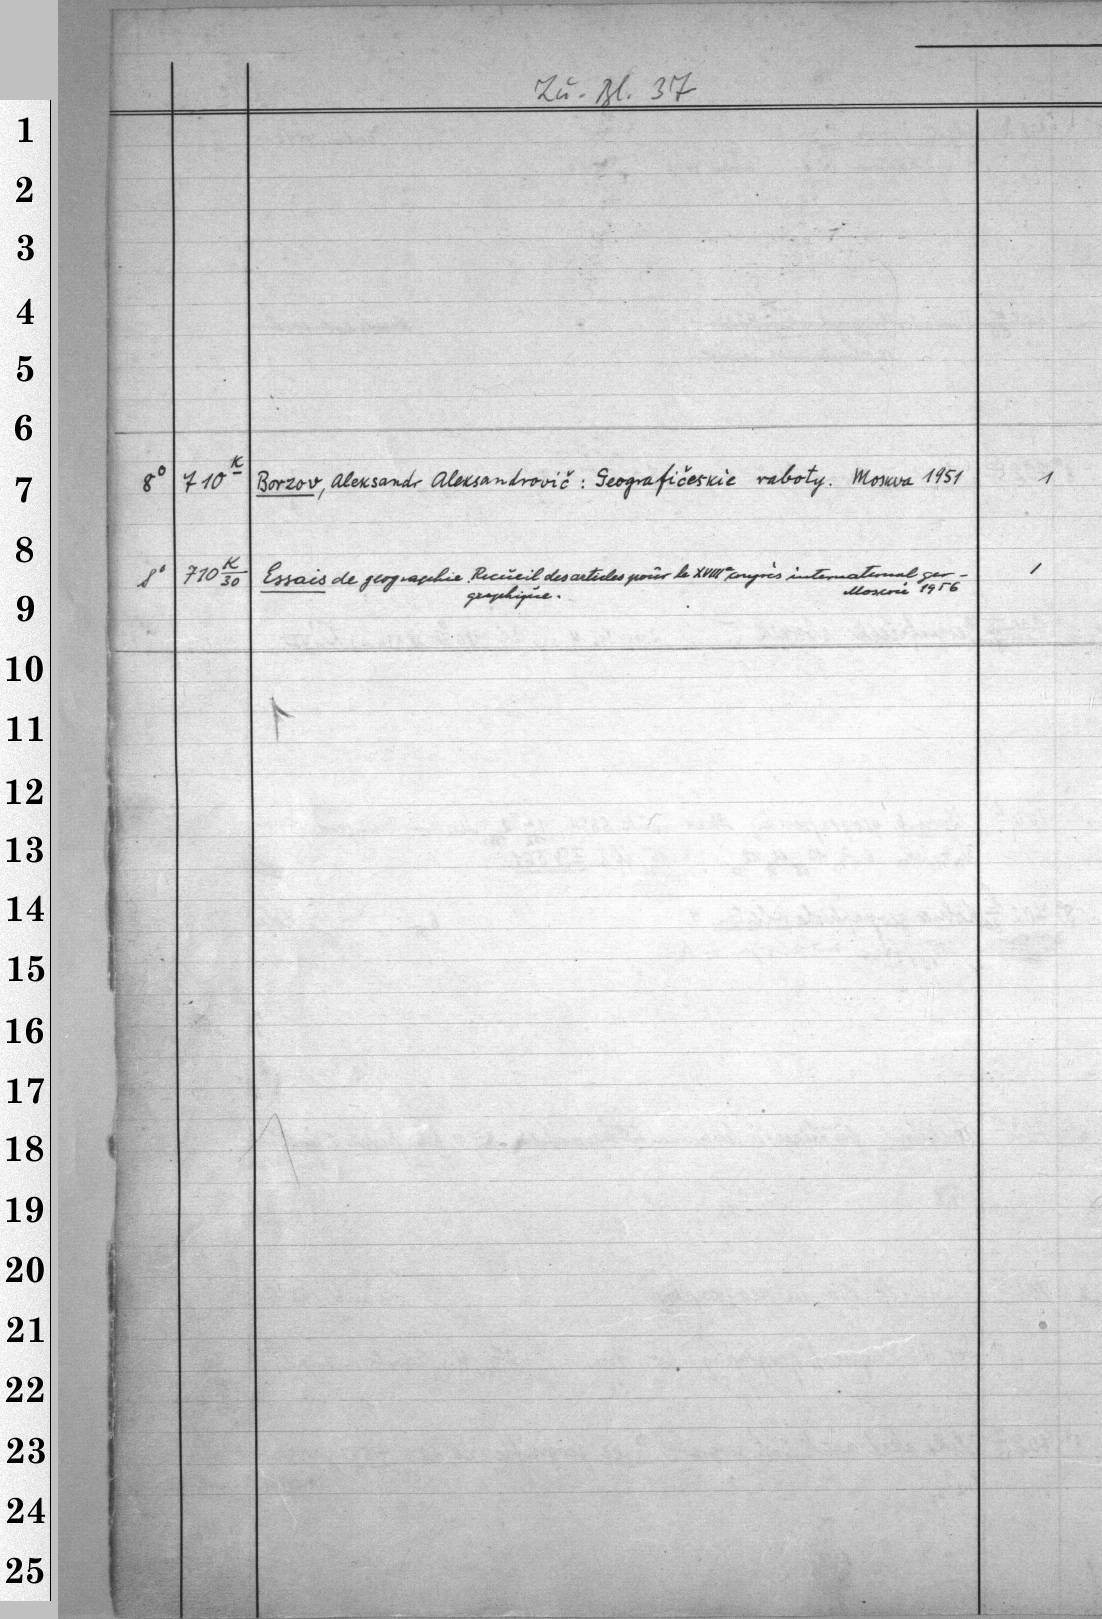 Zu. Bl. 37
1
2
3
4
5
6
7
8° 710 K Borzov, Aleksandr Aleksandrovič: Geografičeskie raboty. Moskva 1951 1
8
8° 710 K/30 Essais de geographie Recueil des articles pour le XVIIIe congrès international geo-
graphique. Moscou 1956 1
9
10
11
12
13
14
15
16
17
18
19
20
21
22
23
24
25